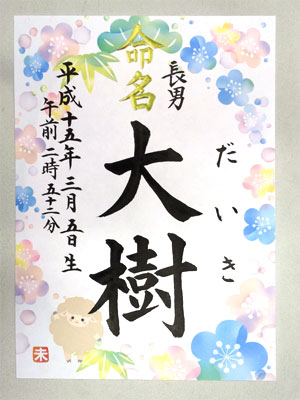 命名
長男
大樹
だいき
平成十五年三月五日生
午前二時五十二分
未